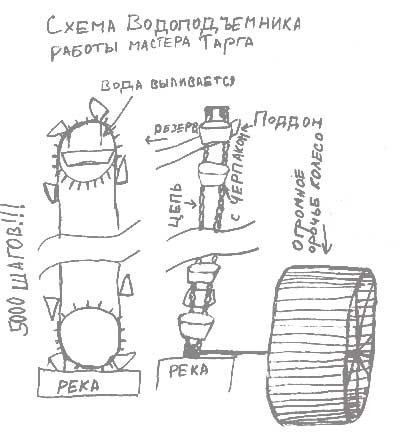 Схема Водоподъемника
работы мастера Тарга
Вода выливается
Дезерв
Поддон
с черпаком
цепь
огромное
орочье колесо
5000 шагов!!!
река
река